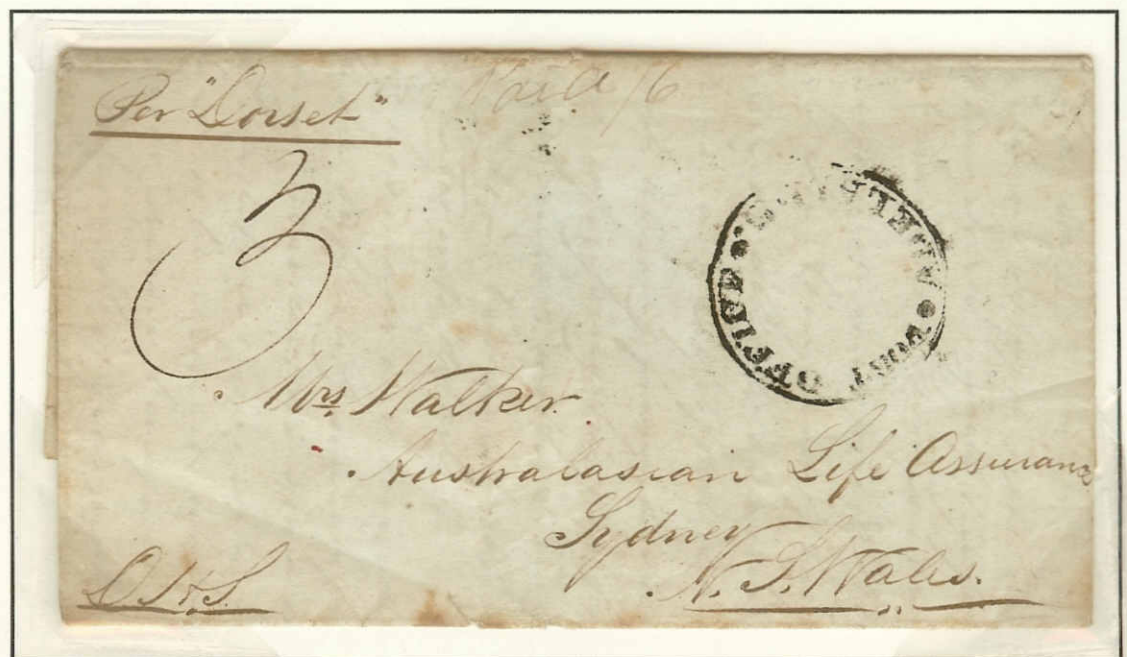 Per "Dorset"
Paid /6
3
POST OFFICE • ADELAIDE
Mrs Walker
Australasian Life Assurance
Sydney
N. S. Wales.